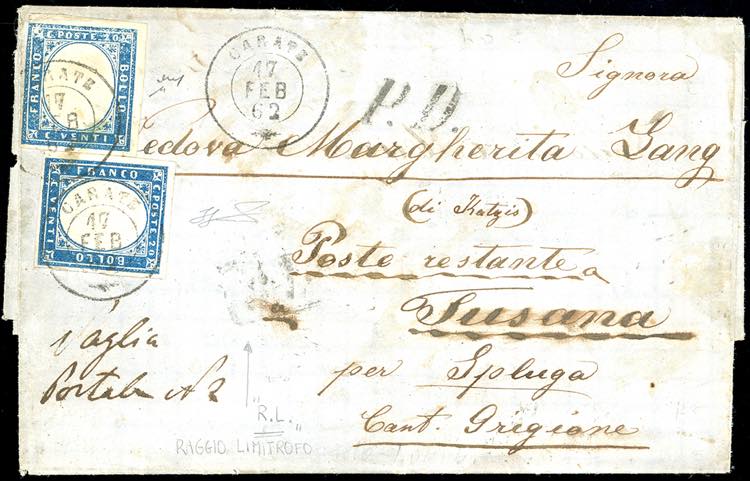 FRANCO
C. POSTE 20
BOLLO
C. VENTI
CARATE
17
FEB
62
FRANCO
C. POSTE 20
BOLLO
C. VENTI
CARATE
17
FEB
62
P.D.
Signora
Vedova Margherita Lang
(di Katzis)
Poste restante a
Tusana
per Spluga
Cant. Grigione
Vaglia
Portale N 2
R.L.
RAGGIO LIMITROFO